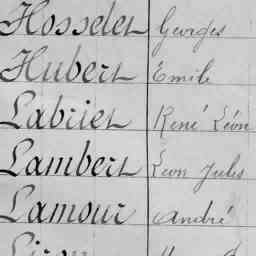 Hosselet Georges
Hubert Emile
Labriet René Léon
Lambert Léon Jules
Lamour André